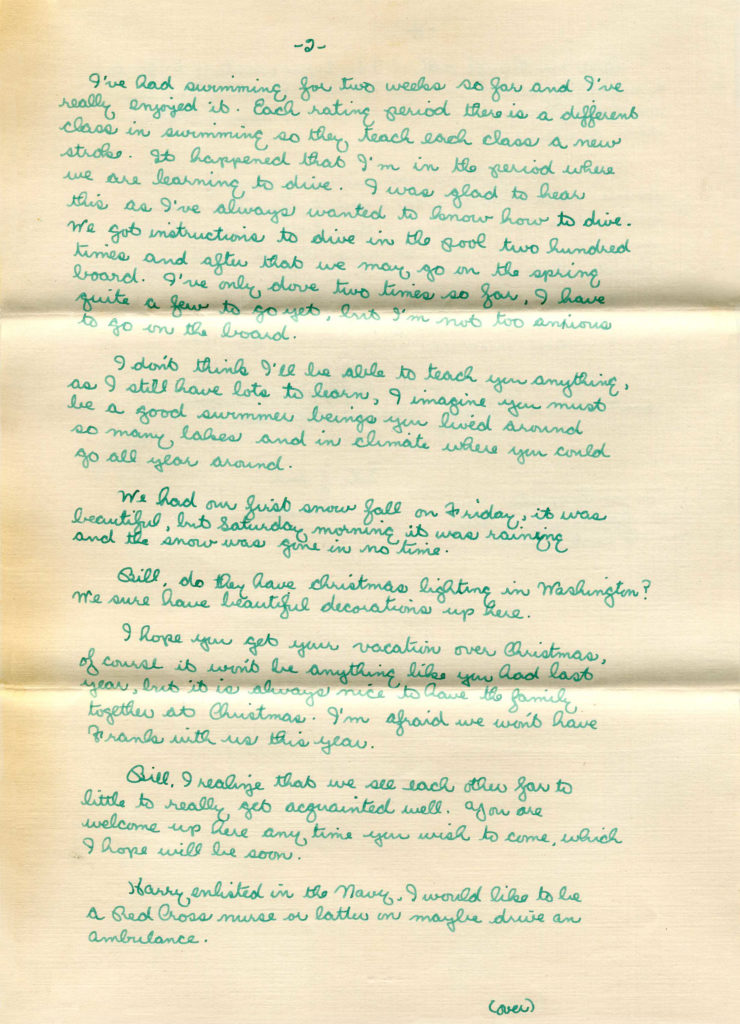 -2-
I've had swimming for two weeks so far and I've
really enjoyed it. Each rating period there is a different
class in swimming so they teach each class a new
stroke. It happened that I'm in the period where
we are learning to dive. I was glad to hear
this as I've always wanted to know how to dive.
We got instructions to dive in the pool two hundred
times and after that we may go on the spring
board. I've only dove two times so far, I have
quite a few to go yet, but I'm not too anxious
to go on the board.
I don't think I'll be able to teach you anything,
as I still have lots to learn, I imagine you must
be a good swimmer beings you lived around
so many lakes and in climate where you could
go all year around.
We had our first snow fall on Friday, it was
beautiful, but Saturday morning it was raining
and the snow was gone in no time.
Bill, do they have christmas lighting in Washington?
We sure have beautiful decorations up here.
I hope you get your vacation over Christmas,
of course it won't be anything like you had last
year, but it is always nice to have the family
together at Christmas. I'm afraid we won't have
Frank with us this year.
Bill, I realize that we see each other far to
little to really get acquainted well. You are
welcome up here any time you wish to come, which
I hope will be soon.
Harry enlisted in the Navy. I would like to be
a Red Cross nurse or latter on maybe drive an
ambulance.
(over)